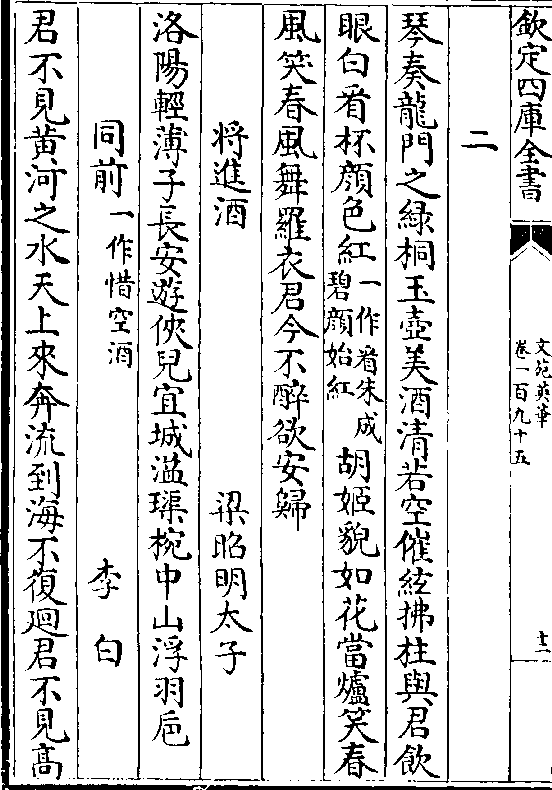 欽定四庫全書
文苑英華
卷一百九十五
十二
二
琴奏龍門之綠桐玉壺美酒清若空催絃拂柱與君飲
眼白看杯顔色紅一作看朱成碧顔始紅胡姬貌如花當爐笑春
風笑春風舞羅衣君今不醉欲安歸
将進酒 梁昭明太子
洛陽輕薄子長安遊俠兒宜城溢琹椀中山浮羽巵
同前一作惜空酒 李白
君不見黄河之水天上來奔流到海不復迴君不見髙